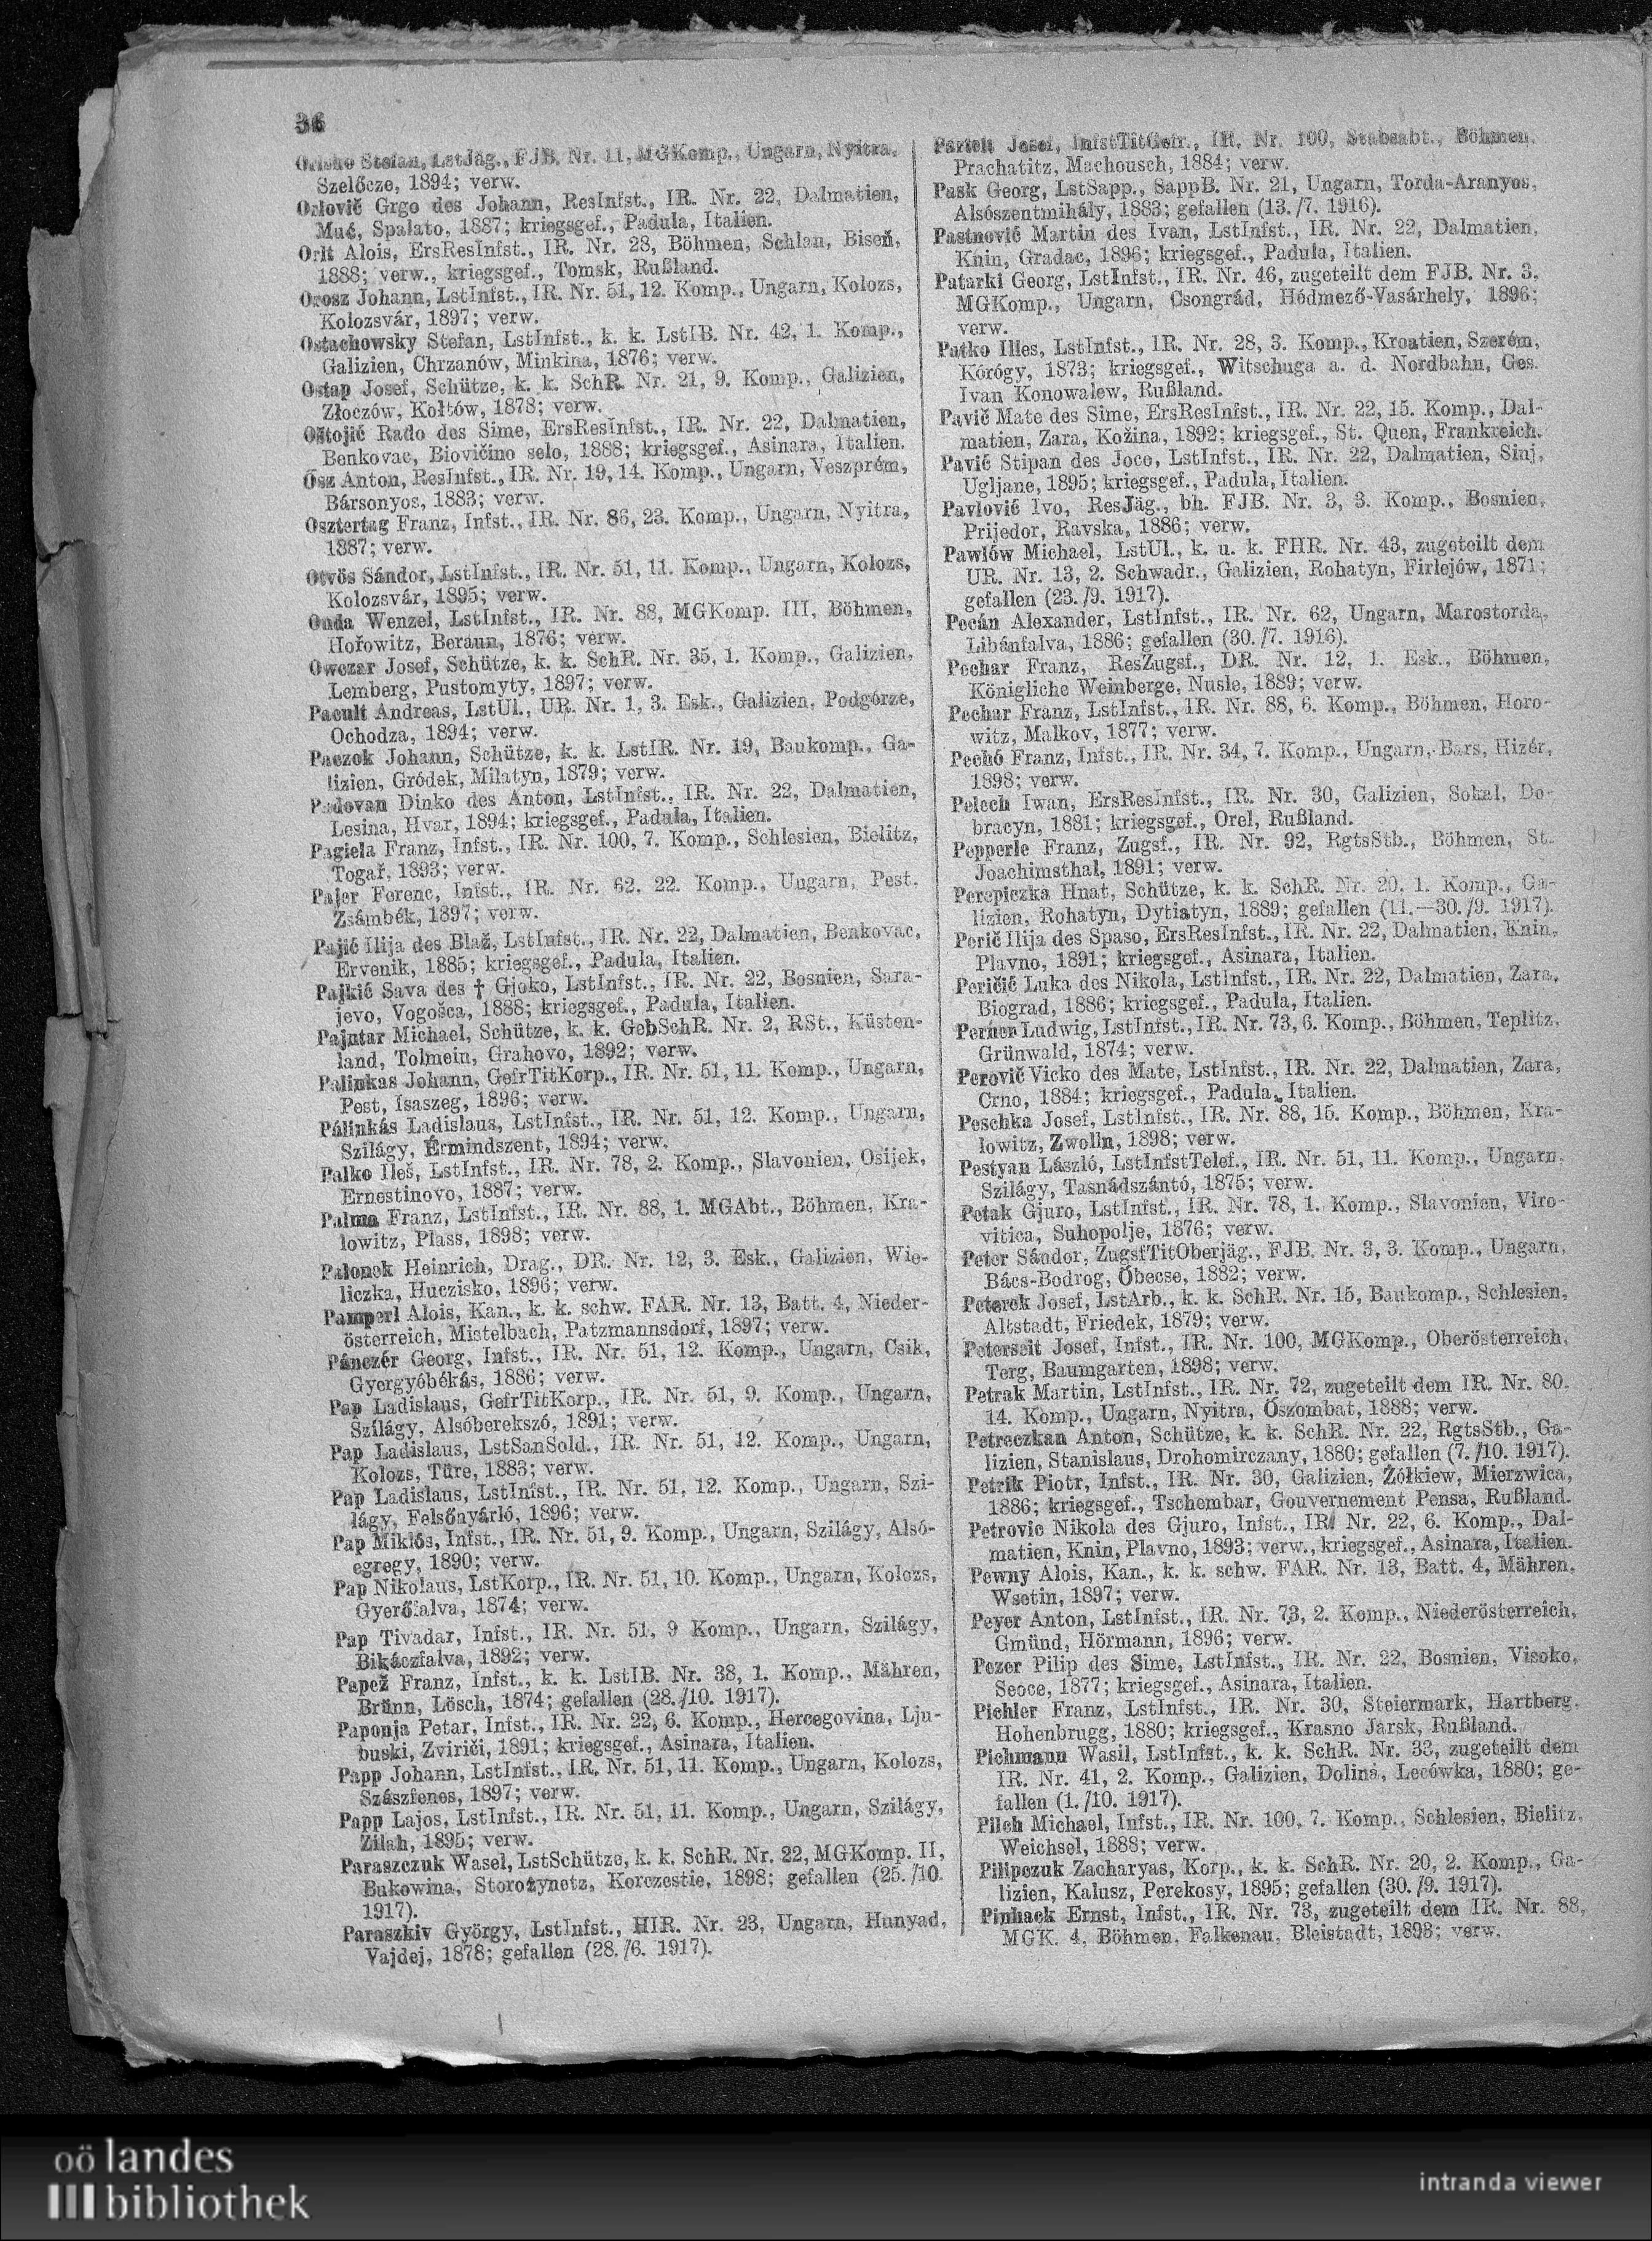 36
Stefan, LstJäg., FJB. Nr. 11, MGKomp., Ungarn, Nyitra,
Szelőcze, 1894; verw.
Orlovič Grgo des Johann, ResInfst., IR. Nr. 22, Dalmatien,
Muć, Spalato, 1887; kriegsgef., Padula, Italien.
Orlt Alois, ErsResInfst., IR. Nr. 28, Böhmen, Schlan, Biseň,
1888; verw., kriegsgef., Tomsk, Rußland.
Orosz Johann, LstInfst., IR. Nr. 51, 12. Komp., Ungarn, Kolozs,
Kolozsvár, 1897; verw.
Ostachowsky Stefan, LstInfst., k. k. LstIB. Nr. 42, 1. Komp.,
Galizien, Chrzanów, Minkina, 1876; verw.
Ostap Josef, Schütze, k. k. SchR. Nr. 21, 9. Komp., Galizien,
Złoczów, Kołtów, 1878; verw.
Oštojić Rado des Sime, ErsResInfst., IR. Nr. 22, Dalmatien,
Benkovac, Biovičino selo, 1888; kriegsgef., Asinara, Italien.
Ősz Anton, ResInfst., IR. Nr. 19, 14. Komp., Ungarn, Veszprém,
Bársonyos, 1883; verw.
Osztertag Franz, Infst., IR. Nr. 86, 23. Komp., Ungarn, Nyitra,
1887; verw.
Otvös Sándor, LstInfst., IR. Nr. 51, 11. Komp., Ungarn, Kolozs,
Kolozsvár, 1895; verw.
Ouda Wenzel, LstInfst., IR. Nr. 88, MGKomp. III, Böhmen,
Hořowitz, Beraun, 1876; verw.
Owczar Josef, Schütze, k. k. SchR. Nr. 35, 1. Komp., Galizien,
Lemberg, Pustomyty, 1897; verw.
Pacult Andreas, LstUl., UR. Nr. 1, 3. Esk., Galizien, Podgórze,
Ochodza, 1894; verw.
Paczok Johann, Schütze, k. k. LstIR. Nr. 19, Baukomp., Ga-
lizien, Gródek, Milatyn, 1879; verw.
Padovan Dinko des Anton, LstInfst., IR. Nr. 22, Dalmatien,
Lesina, Hvar, 1894; kriegsgef., Padula, Italien.
Pagiela Franz, Infst., IR. Nr. 100, 7. Komp., Schlesien, Bielitz,
Togař, 1893; verw.
Pajer Ferenc, Infst., IR. Nr. 62, 22. Komp., Ungarn, Pest,
Zsámbék, 1897; verw.
Pajić Ilija des Blaž, LstInfst., IR. Nr. 22, Dalmatien, Benkovac,
Ervenik, 1885; kriegsgef., Padula, Italien.
Pajkić Sava des † Gjoko, LstInfst., IR. Nr. 22, Bosnien, Sara-
jevo, Vogošca, 1888; kriegsgef., Padula, Italien.
Pajntar Michael, Schütze, k. k. GebSchR. Nr. 2, RSt., Küsten-
land, Tolmein, Grahovo, 1892; verw.
Palinkas Johann, GefrTitKorp., IR. Nr. 51, 11. Komp., Ungarn,
Pest, Isaszeg, 1896; verw.
Pálinkás Ladislaus, LstInfst., IR. Nr. 51, 12. Komp., Ungarn,
Szilágy, Érmindszent, 1894; verw.
Palko Ileš, LstInfst., IR. Nr. 78, 2. Komp., Slavonien, Osijek,
Ernestinovo, 1887; verw.
Palma Franz, LstInfst., IR. Nr. 88, 1. MGAbt., Böhmen, Kra-
lowitz, Plass, 1898; verw.
Palonek Heinrich, Drag., DR. Nr. 12, 3. Esk., Galizien, Wie-
liczka, Huczisko, 1896; verw.
Pamperl Alois, Kan., k. k. schw. FAR. Nr. 13, Batt. 4, Nieder-
österreich, Mistelbach, Patzmannsdorf, 1897; verw.
Pánczér Georg, Infst., IR. Nr. 51, 12. Komp., Ungarn, Csik,
Gyergyóbékás, 1886; verw.
Pap Ladislaus, GefrTitKorp., IR. Nr. 51, 9. Komp., Ungarn,
Szilágy, Alsóberekszó, 1891; verw.
Pap Ladislaus, LstSanSold., IR. Nr. 51, 12. Komp., Ungarn,
Kolozs, Türe, 1883; verw.
Pap Ladislaus, LstInfst., IR. Nr. 51, 12. Komp., Ungarn, Szi-
lágy, Felsőnyárló, 1896; verw.
Pap Miklós, Infst., IR. Nr. 51, 9. Komp., Ungarn, Szilágy, Alsó-
egregy, 1890; verw.
Pap Nikolaus, LstKorp., IR. Nr. 51, 10. Komp., Ungarn, Kolozs,
Gyerőfalva, 1874; verw.
Pap Tivadar, Infst., IR. Nr. 51, 9 Komp., Ungarn, Szilágy,
Bikáczfalva, 1892; verw.
Papež Franz, Infst., k. k. LstIB. Nr. 38, 1. Komp., Mähren,
Brünn, Lösch, 1874; gefallen (28./10. 1917).
Paponja Petar, Infst., IR. Nr. 22, 6. Komp., Hercegovina, Lju-
buski, Zviriči, 1891; kriegsgef., Asinara, Italien.
Papp Johann, LstInfst., IR. Nr. 51, 11. Komp., Ungarn, Kolozs,
Szászfenes, 1897; verw.
Papp Lajos, LstInfst., IR. Nr. 51, 11. Komp., Ungarn, Szilágy,
Zilah, 1895; verw.
Paraszczuk Wasel, LstSchütze, k. k. SchR. Nr. 22, MGKomp. II,
Bukowina, Storożynetz, Korczestie, 1898; gefallen (25./10.
1917).
Paraszkiv György, LstInfst., HIR. Nr. 23, Ungarn, Hunyad,
Vajdej, 1878; gefallen (28./6. 1917).
Partelt Josef, InfstTitGefr., IR. Nr. 100, Stabsabt., Böhmen,
Prachatitz, Machousch, 1884; verw.
Pask Georg, LstSapp., SappB. Nr. 21, Ungarn, Torda-Aranyos,
Alsószentmihály, 1883; gefallen (13./7. 1916).
Pastnović Martin des Ivan, LstInfst., IR. Nr. 22, Dalmatien,
Knin, Gradac, 1896; kriegsgef., Padula, Italien.
Patarki Georg, LstInfst., IR. Nr. 46, zugeteilt dem FJB. Nr. 3,
MGKomp., Ungarn, Csongrád, Hódmező-Vasárhely, 1896;
verw.
Patko Illes, LstInfst., IR. Nr. 28, 3. Komp., Kroatien, Szerém,
Kórógy, 1873; kriegsgef., Witschuga a. d. Nordbahn, Ges.
Ivan Konowalew, Rußland.
Pavič Mate des Sime, ErsResInfst., IR. Nr. 22, 15. Komp., Dal-
matien, Zara, Kožina, 1892; kriegsgef., St. Quen, Frankreich.
Pavić Stipan des Joco, LstInfst., IR. Nr. 22, Dalmatien, Sinj,
Ugljane, 1895; kriegsgef., Padula, Italien.
Pavlović Ivo, ResJäg., bh. FJB. Nr. 3, 3. Komp., Bosnien,
Prijedor, Ravska, 1886; verw.
Pawlów Michael, LstUl., k. u. k. FHR. Nr. 43, zugeteilt dem
UR. Nr. 13, 2. Schwadr., Galizien, Rohatyn, Firlejów, 1871;
gefallen (23./9. 1917).
Pecán Alexander, LstInfst., IR. Nr. 62, Ungarn, Marostorda,
Libánfalva, 1886; gefallen (30./7. 1916).
Pechar Franz, ResZugsf., DR. Nr. 12, 1. Esk., Böhmen,
Königliche Weinberge, Nusle, 1889; verw.
Pechar Franz, LstInfst., IR. Nr. 88, 6. Komp., Böhmen, Horo-
witz, Malkov, 1877; verw.
Pechó Franz, Infst., IR. Nr. 34, 7. Komp., Ungarn, Bars, Hizér,
1898; verw.
Pelech Iwan, ErsResInfst., IR. Nr. 30, Galizien, Sokal, Do-
bracyn, 1881; kriegsgef., Orel, Rußland.
Pepperle Franz, Zugsf., IR. Nr. 92, RgtsStb., Böhmen, St.
Joachimsthal, 1891; verw.
Perepiczka Hnat, Schütze, k. k. SchR. Nr. 20, 1. Komp., Ga-
lizien, Rohatyn, Dytiatyn, 1889; gefallen (11.—30./9. 1917).
Perič Ilija des Spaso, ErsResInfst., IR. Nr. 22, Dalmatien, Knin,
Plavno, 1891; kriegsgef., Asinara, Italien.
Peričić Luka des Nikola, LstInfst., IR. Nr. 22, Dalmatien, Zara,
Biograd, 1886; kriegsgef., Padula, Italien.
Perner Ludwig, LstInfst., IR. Nr. 73, 6. Komp., Böhmen, Teplitz,
Grünwald, 1874; verw.
Perovič Vicko des Mate, LstInfst., IR. Nr. 22, Dalmatien, Zara,
Crno, 1884; kriegsgef., Padula, Italien.
Peschka Josef, LstInfst., IR. Nr. 88, 15. Komp., Böhmen, Kra-
lowitz, Zwolln, 1898; verw.
Pestyan László, LstInfstTelef., IR. Nr. 51, 11. Komp., Ungarn,
Szilágy, Tasnádszántó, 1875; verw.
Petak Gjuro, LstInfst., IR. Nr. 78, 1. Komp., Slavonien, Viro-
vitica, Suhopolje, 1876; verw.
Peter Sándor, ZugsfTitOberjäg., FJB. Nr. 3, 3. Komp., Ungarn,
Bács-Bodrog, Óbecse, 1882; verw.
Peterek Josef, LstArb., k. k. SchR. Nr. 15, Baukomp., Schlesien,
Altstadt, Friedek, 1879; verw.
Peterseit Josef, Infst., IR. Nr. 100, MGKomp., Oberösterreich,
Terg, Baumgarten, 1898; verw.
Petrak Martin, LstInfst., IR. Nr. 72, zugeteilt dem IR. Nr. 80,
14. Komp., Ungarn, Nyitra, Ószombat, 1888; verw.
Petreczkan Anton, Schütze, k. k. SchR. Nr. 22, RgtsStb., Ga-
lizien, Stanislaus, Drohomirczany, 1880; gefallen (7./10. 1917).
Petrik Piotr, Infst., IR. Nr. 30, Galizien, Żółkiew, Mierzwica,
1886; kriegsgef., Tschembar, Gouvernement Pensa, Rußland.
Petrovic Nikola des Gjuro, Infst., IR. Nr. 22, 6. Komp., Dal-
matien, Knin, Plavno, 1893; verw., kriegsgef., Asinara, Italien.
Pewny Alois, Kan., k. k. schw. FAR. Nr. 13, Batt. 4, Mähren,
Wsetin, 1897; verw.
Peyer Anton, LstInfst., IR. Nr. 73, 2. Komp., Niederösterreich,
Gmünd, Hörmann, 1896; verw.
Pezer Pilip des Sime, LstInfst., IR. Nr. 22, Bosnien, Visoko,
Seoce, 1877; kriegsgef., Asinara, Italien.
Pichler Franz, LstInfst., IR. Nr. 30, Steiermark, Hartberg,
Hohenbrugg, 1880; kriegsgef., Krasno Jarsk, Rußland.
Pichmann Wasil, LstInfst., k. k. SchR. Nr. 33, zugeteilt dem
IR. Nr. 41, 2. Komp., Galizien, Dolina, Lecówka, 1880; ge-
fallen (1./10. 1917).
Pilch Michael, Infst., IR. Nr. 100, 7. Komp., Schlesien, Bielitz,
Weichsel, 1888; verw.
Pilipczuk Zacharyas, Korp., k. k. SchR. Nr. 20, 2. Komp., Ga-
lizien, Kalusz, Perekosy, 1895; gefallen (30./9. 1917).
Pinhack Ernst, Infst., IR. Nr. 73, zugeteilt dem IR. Nr. 88,
MGK. 4, Böhmen, Falkenau, Bleistadt, 1898; verw.
oö landes
bibliothek
intranda viewer